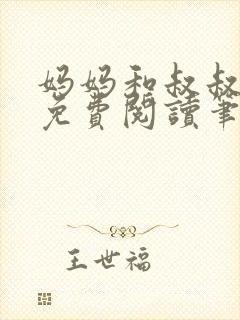 妈妈和叔叔
免費閱讀筆
王世福